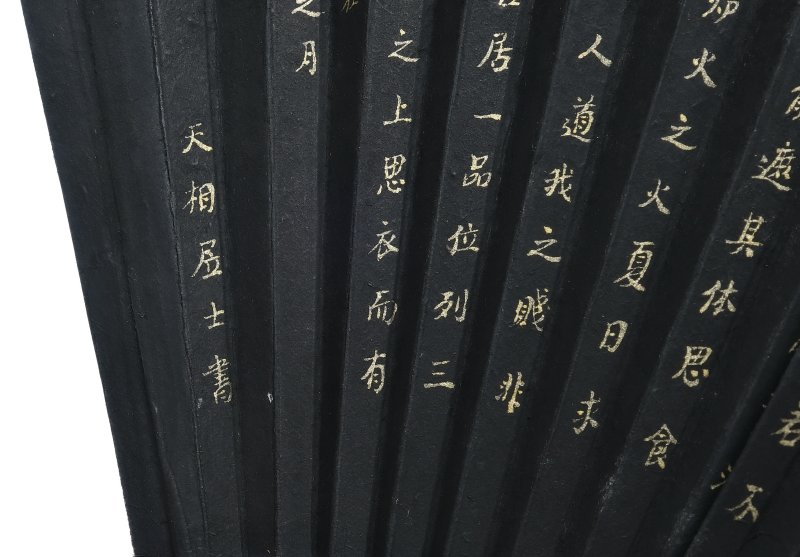 君不
遮其体思食
火之火夏日求
人道我之賤非
居一品位列三
之上思衣而有
之月
天相居士書